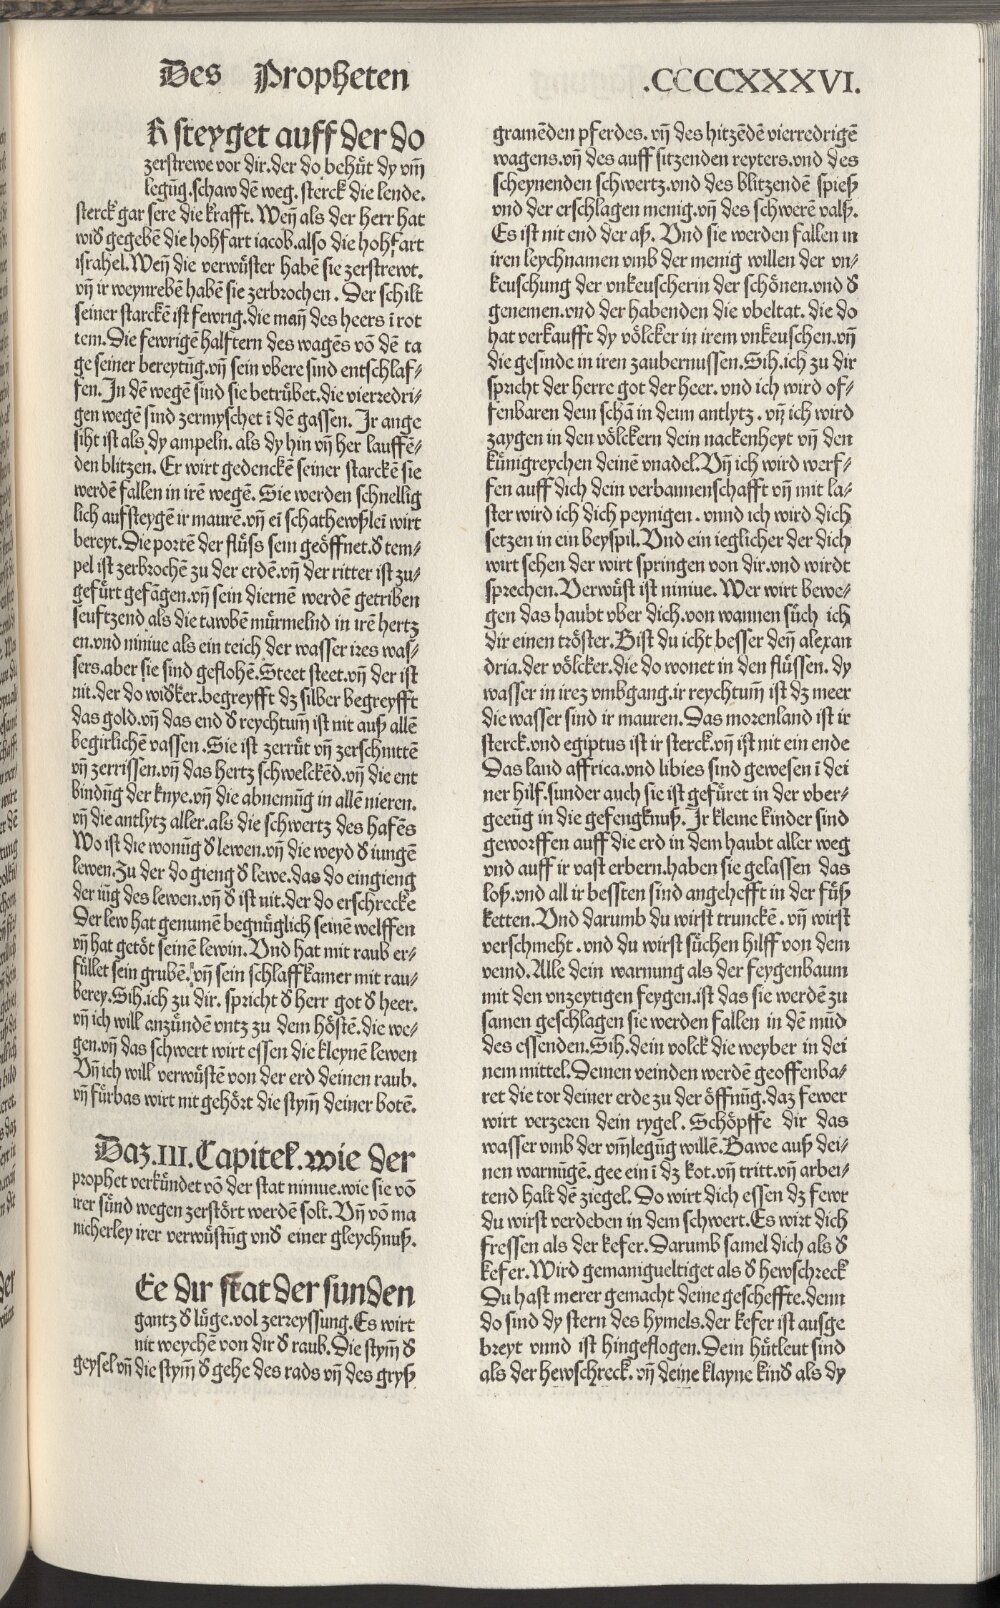 Des Propheten
.CCCCXXXVI.
R steyget auff der do
zerstrewe vor dir.der do behüt dy vm̄
legūg.schaw dē weg. sterck die lende.
sterck gar sere die krafft. Wen̄ als der herr hat
wid gegebē die hohfart iacob.also die hohfart
israhel.Wen̄ die verwüster habē sie zerstrewt.
vn̄ ir weynrebē haben sie zerbrochen. Der schilt
seiner starckē ist fewrig.die man̄ des heers ī rot
tem.Die fewrigē halftern des wagēs vō dē ta
ge seiner bereytūg.vn̄ sein vbere sind entschlaf-
fen. In dē wegē sind sie betrübet.die vierredri-
gen wegē sind zermyschet ī dē gassen. Ir ange
siht ist als dy ampeln. als dy hin vn̄ her lauffē-
den blitzen. Er wirt gedenckē seiner starckē sie
werdē fallen in irē wegē. Sie werden schnellig
lich aufsteygē ir maurē.vn̄ eī schathewßleī wirt
bereyt.Die portē der flüss sein geöffnet.đ tem-
pel ist zerbrochē zu der erdē.vn̄ der ritter ist zu-
gefürt gefāgen.vn̄ sein diernē werdē getriben
seuftzend als die tawbē mürmelnd in irē hertz
en.vnd niniue als ein teich der wasser ires was-
sers.aber sie sind geflohē.Steet steet.vn̄ der ist
nit.der do widker.begreyfft dz silber begreyfft
das gold.vn̄ das end đ reychtum̄ ist nit auß allē
begirlichē vassen.Sie ist zerrüt vn̄ zerschnittē
vn̄ zerrissen.vn̄ das hertz schwelckēd.vn̄ die ent
bindūg der knye.vn̄ die abnemūg in allē nieren.
vn̄ die antlytz aller.als die schwertz des hafēs
Wo ist die wonūg đ lewen.vn̄ die weyd đ iungē
lewen.Zu der do gieng đ lewe.das do eingieng
der iūg des lewen.vn̄ đ ist nit.der do erschreckē
Der lew hat genumē begnüglich seinē welffen
vn̄ hat getöt seinē lewin. Vnd hat mit raub er-
füllet sein grubē. vn̄ sein schlaffkamer mit rau-
berey.Sih.ich zu dir. spricht đ herr got đ heer.
vn̄ ich will anzündē vntz zu dem höstē.die we-
gen.vn̄ das schwert wirt essen die kleynē lewen
Vn̄ ich will verwüstē von der erd deinen raub.
vn̄ fürbas wirt nit gehört die stym̄ deiner botē.
Daz.III.Capitel.wie der
prophet verkündet vō der stat niniue.wie sie vō
irer sünd wegen zerstört werdē solt. Vn̄ vō ma
nicherley irer verwüstūg vnd einer gleychnuß.
Ee dir stat der sunden
gantz đ lüge.vol zerreyssung.Es wirt
nit weychē von dir đ raub. Die stym̄ đ
geysel vn̄ die stym̄ đ gehe des rads vn̄ des gryß
gramēden pferdes. vn̄ des hitzēdē vierredrigē
wagens.vn̄ des auff sitzenden reyters.vnd des
scheynenden schwertz.vnd des blitzendē spieß
vnd der erschlagen menig.vn̄ des schwerē valß.
Es ist nit end der aß. Vnd sie werden fallen in
iren leychnamen vmb der menig willen der vn-
keuschung der vnkeuscherin der schönen.vnd đ
genemen.vnd der habenden die vbeltat. die do
hat verkaufft dy völcker in irem vnkeuschen.vn̄
die gesinde in iren zaubernussen.Sih.ich zu dir
spricht der herre got der heer. vnd ich wird of-
fenbaren dein schā in deim antlytz. vn̄ ich wird
zaygen in den völckern dein nackenheyt vn̄ den
künigreychen deinē vnadel.Vn̄ ich wird werf-
fen auff dich dein verbannenschafft vn̄ mit la-
ster wird ich dich peynigen. vnnd ich wird dich
setzen in ein beyspil.Vnd ein ieglicher der dich
wirt sehen der wirt springen von dir.vnd wirdt
sprechen.Verwüst ist niniue. Wer wirt bewe-
gen das haubt vber dich.von wannen süch ich
dir einen tröster.Bist du icht besser den̄ alexan
dria.der völcker.die do wonet in den flüssen. dy
wasser in irez vmbgang.ir reychtum̄ ist dz meer
die wasser sind ir mauren.Das morenland ist ir
sterck.vnd egiptus ist ir sterck.vn̄ ist nit ein ende
Das land affrica.vnd libies sind gewesen ī dei
ner hilf.sunder auch sie ist gefüret in der vber-
geeūg in die gefengknuß. Ir kleine kinder sind
geworffen auff die erd in dem haubt aller weg
vnd auff ir vast erbern.haben sie gelassen das
loß.vnd all ir bessten sind angehefft in der füß
ketten. Vnd darumb du wirst trunckē. vn̄ wirst
verschmeht. vnd du wirst süchen hilff von dem
veind. Alle dein warnung als der feygenbaum
mit den vnzeytigen feygen.ist das sie werdē zu
samen geschlagen sie werden fallen in dē mūd
des essenden.Sih.dein volck die weyber in dei
nem mittel. Deinen veinden werdē geoffenba-
ret die tor deiner erde zu der öffnūg.daz fewer
wirt verzeren dein rygel. Schöpffe dir das
wasser vmb der vm̄legūg willē.Bawe auß dei-
nen warnūgē. gee ein ī dz kot.vn̄ tritt.vn̄ arbei-
tend halt dē ziegel. Do wirt dich essen dz fewr
du wirst verdeben in dem schwert.Es wirt dich
fressen als der kefer. Darumb samel dich als đ
kefer.Wird gemanigueltiget als đ hewschreck
Du hast merer gemacht deine gescheffte.denn
do sind dy stern des hymels.der kefer ist ausge
breyt vnnd ist hingeflogen.Dein hütleut sind
als der hewschreck. vn̄ deine klayne kind als dy